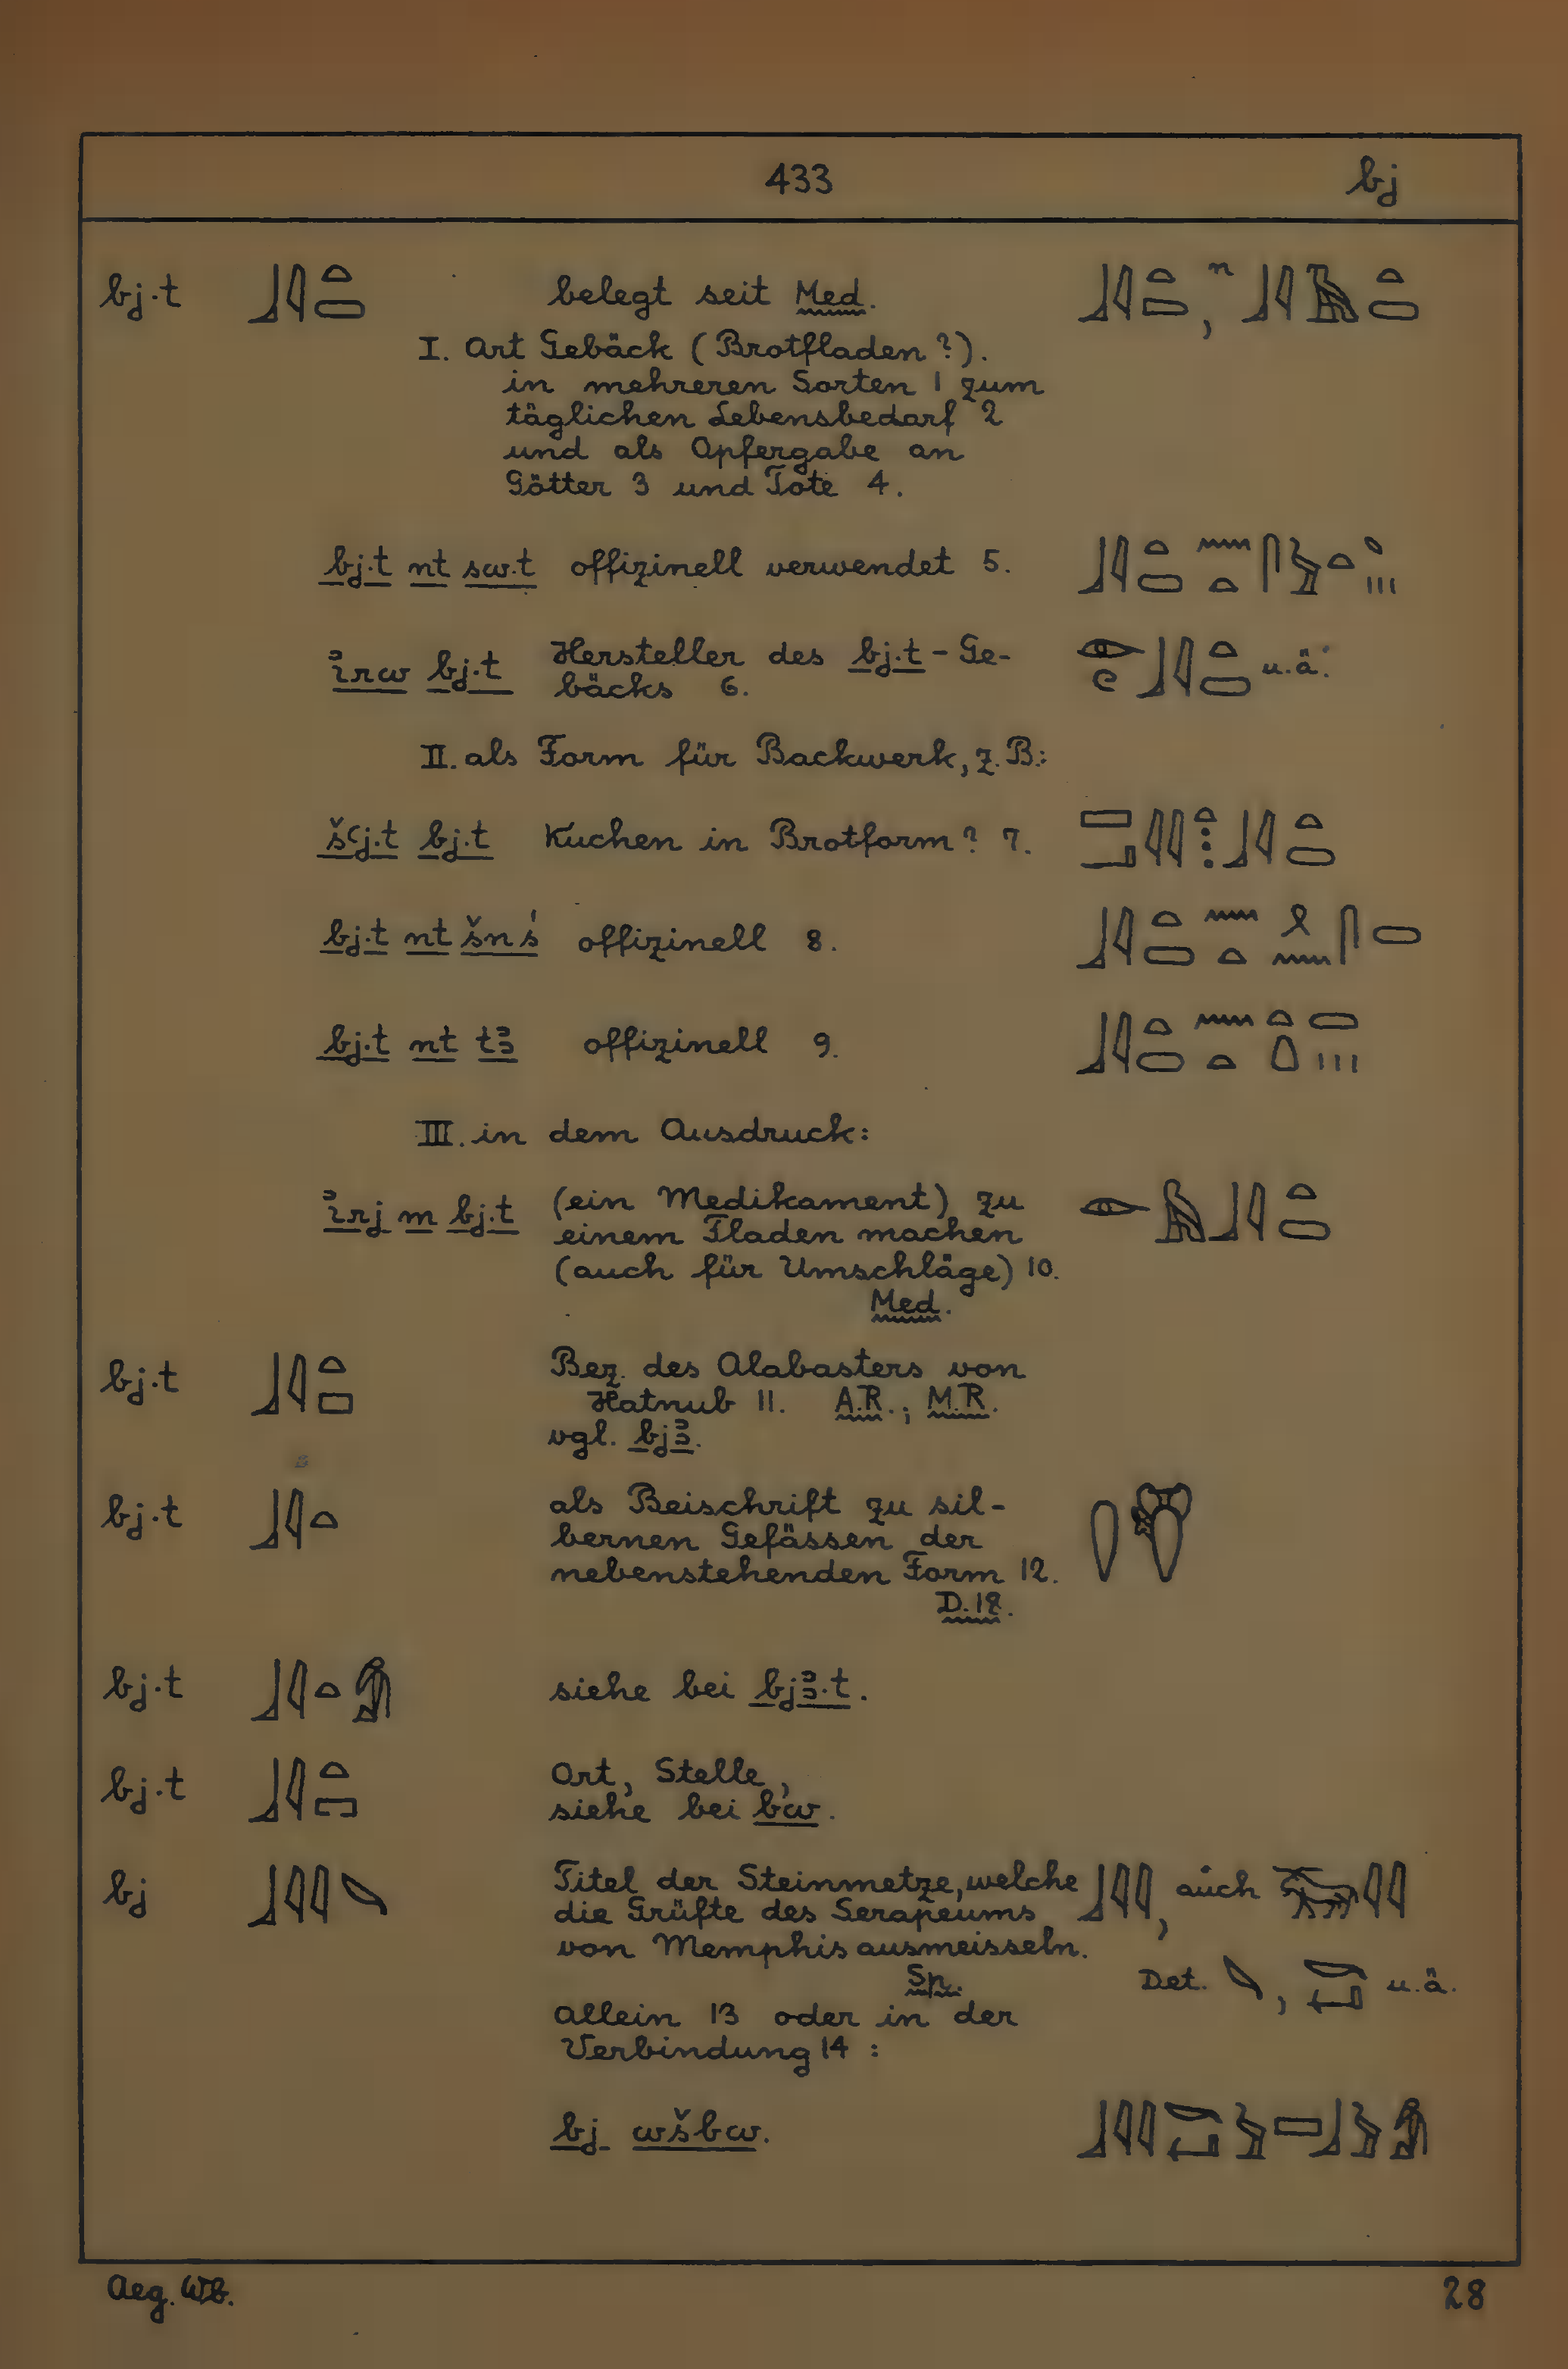 433 bj
bj·t 𓃀𓇋𓏏𓏒 belegt seit Med.
I. Art Gebäck (Brotfladen?).
in mehreren Sorten 1 zum
täglichen Lebensbedarf 2
und als Opfergabe an
Götter 3 und Tote 4.
bj·t nt sw·t offizinell verwendet 5.
ꞽrw bj·t Hersteller des bj·t-Ge- u.ä.
bäcks 6.
II. als Form für Backwerk, z.B.:
šꜥj·t bj·t Kuchen in Brotform? 7.
bj·t nt šnś offizinell 8.
bj·t nt tꜣ offizinell 9.
III. in dem Ausdruck:
ꞽrj m bj·t (ein Medikament) zu
einem Fladen machen
(auch für Umschläge) 10.
Med.
bj·t Bez. des Alabasters von
Hatnub 11. A.R.; M.R.
vgl. bjꜣ.
bj·t 𓃀𓇋𓏏 als Beischrift zu sil-
bernen Gefässen der
nebenstehenden Form 12.
D.18.
bj·t siehe bei bjꜣ·t.
bj·t Ort, Stelle,
siehe bei bw.
bj Titel der Steinmetze, welche 𓃀𓇋𓇋, auch
die Grüfte des Serapeums
von Memphis ausmeisseln.
Sp. Det. u.ä.
allein 13 oder in der
Verbindung 14:
bj wšbw.
Aeg. Wb. 28